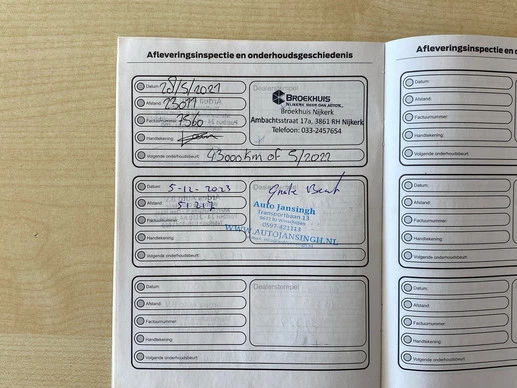 Afleveringsinspectie en onderhoudsgeschiedenis
Datum: 28/5/2021
Afstand: 23011
Factuurnummer: 7560
Handtekening:
Volgende onderhoudsbeurt: 43000km of 5/2022
Dealerstempel
BROEKHUIS
Broekhuis Nijkerk
Ambachtsstraat 17a, 3861 RH Nijkerk
Telefoon: 033-2457654
Datum: 5-12-2023
Afstand: 51217
Factuurnummer:
Handtekening:
Volgende onderhoudsbeurt:
Grote Beurt
Auto Jansingh
Transportbaan 13
0597-421113
WWW.AUTOJANSINGH.NL
Datum:
Afstand:
Factuurnummer:
Handtekening:
Volgende onderhoudsbeurt:
Dealerstempel
Afleveringsinspectie en o
Datum:
Afstand:
Factuurnummer:
Handtekening:
Volgende onderhoudsbeurt:
Datum:
Afstand:
Factuurnummer:
Handtekening:
Volgende onderhoudsbeurt:
Datum:
Afstand:
Factuurnummer:
Handtekening:
Volgende onderhoudsbeurt: